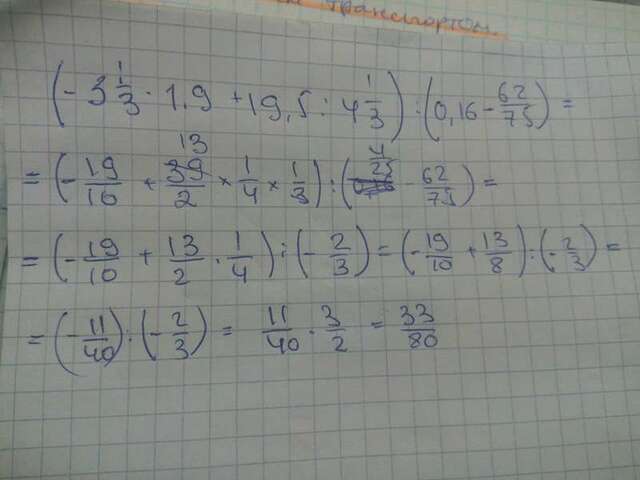 транспортом.
(-3 1/3 · 1,9 + 19,5 : 4 1/3) : (0,16 - 62/75) =
= (-19/10 + 39/2 13 × 1/4 × 1/3) : (4/25 - 62/75) =
= (-19/10 + 13/2 · 1/4) : (-2/3) = (-19/10 + 13/8) : (-2/3) =
= (-11/40) : (-2/3) = 11/40 · 3/2 = 33/80